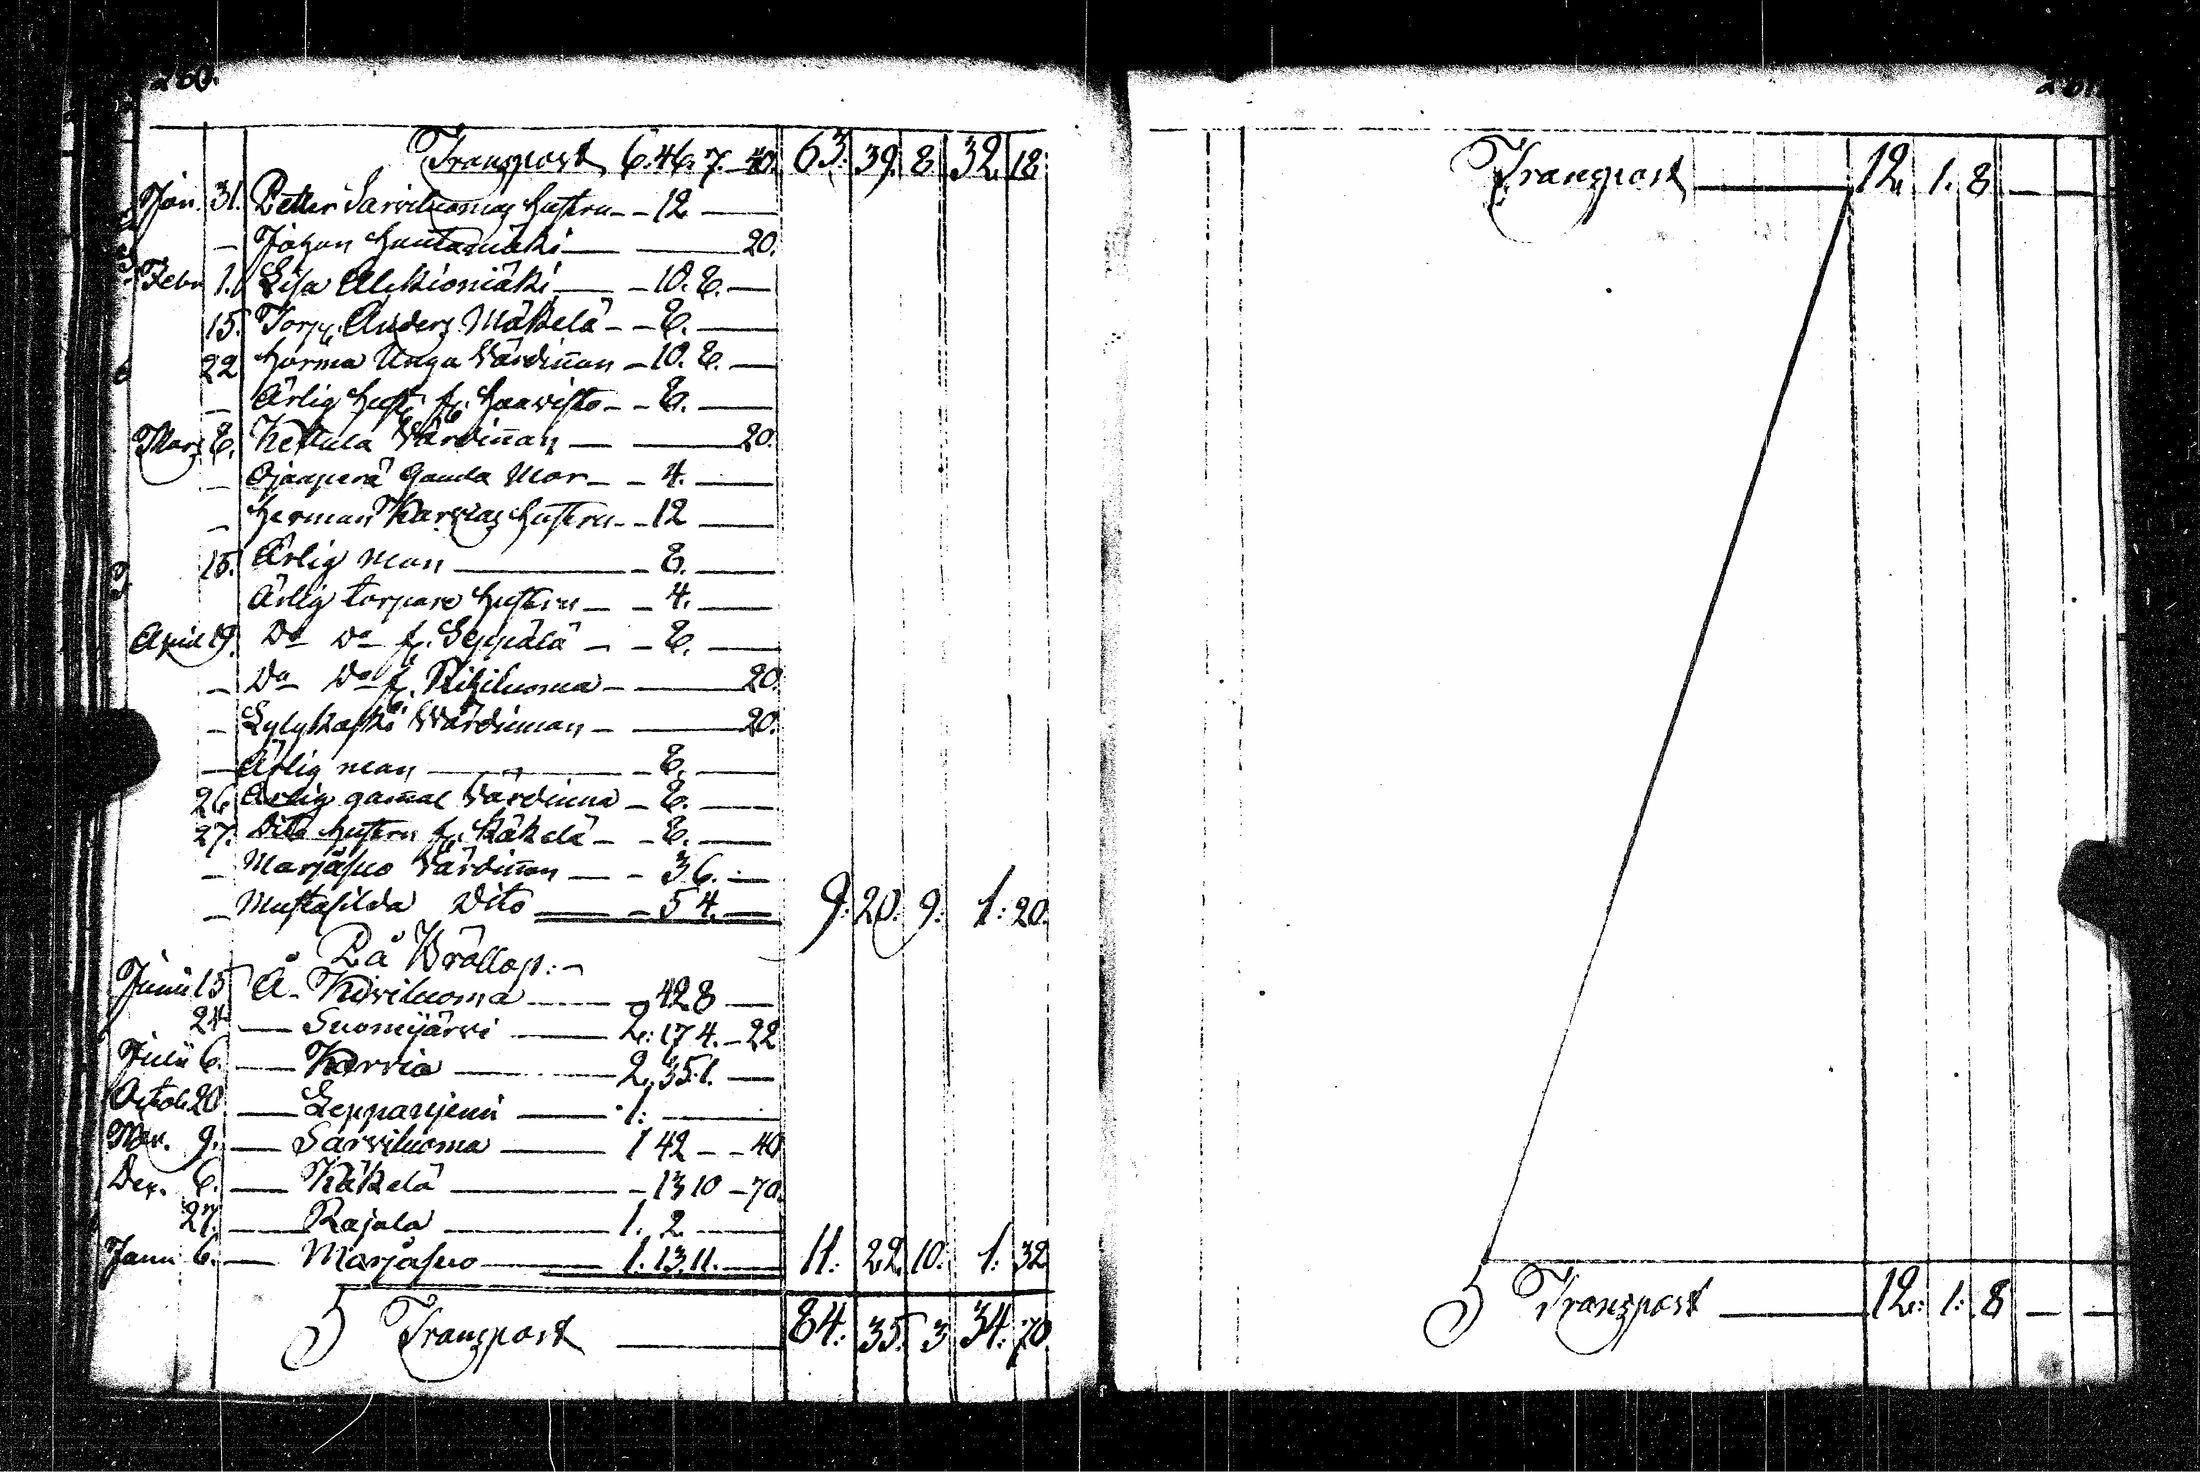 260.
Transport 6. 46. 7. 40. 63: 39. 8. 32. 18.
Jan. 31. Petter Sarviluomas hustru - - 12. —
— Johan Hautamäki — — 20.
Febr. 1. Lisa Alkiomäki — - 10. 8. —
15. Torp. Anders Mäkelä - - 8. —
22 Horma Unga Värdinnan - 10. 8. —
— Ärlig hust. fr. Haavisto - - 8. —
Mars 8. Kettula Värdinnan — — 20.
— Ojanperä Gamla Mor - - 4. —
— Herman Karvias hustru - - 12 —
15. Ärlig man — - 8. —
Ärlig torpare hustru - - 4. —
April 19. Do Do fr. Seppälä - - 8. —
— Do Do fr. — 20.
— Lylykoski Värdinnan - — 20.
— Ärlig man — - 8. —
26. Ärlig gammal Värdinna - 8. —
27. Dito hustru fr. Käkelä - - 8. —
— Marjasuo Värdinnan — - 36. —
— Mustasilda Dito — - 54. — 9: 20: 9: 1: 20.
På Bröllop: -
Junii 15 Å - Kiviluoma — - 42 8 —
24 — Suomijärvi — 2: 17 4. - 22
Julii 6. — Karvia — 2. 35 1. —
Octob. 20 — Leppanjemi — 1: —
Nov. 9. — Sarviluoma — 1 42 - - 40
Dec. 6. — Käkelä — - 13 10 - 70.
27. — Rajala — 1. 2. —
Janu. 6. — Marjasuo — 1. 13. 11. — 11: 22. 10: 1: 32
Transport — 84: 35. 3 34: 70.
261.
Transport — 12. 1. 8 — —
Transport — 12: 1: 8 — —